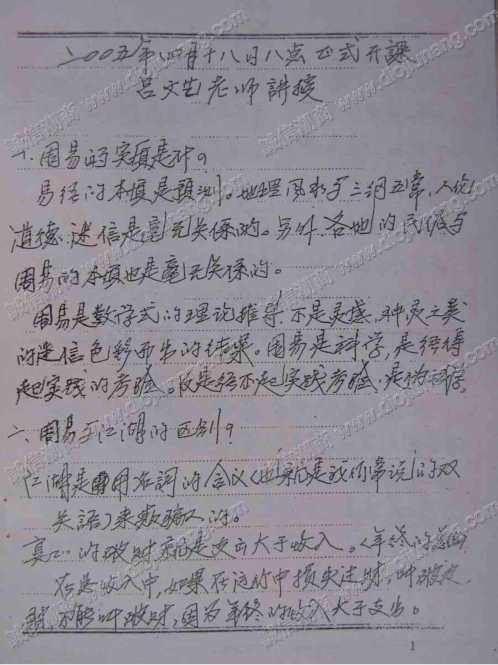 二00五年四月十八日八点正式开課
吕文艺老师講授
一、周易的实質是什。
易经的本質是預测。地理風水于三纲五常,人伦
道德.迷信是毫无关係的。另外.各地的民俗与
周易的本質也是毫无关係的。
周易是数学式的理论推导,不是灵感,神灵之类
的迷信色彩而出的结果。周易是科学,是经得
起实践的考验。凡是经不起实践考验.是伪科学。
二、周易于江湖的区别?
江湖是用名词的会议(也就是我们常说的双
关語)来欺骗人的。
真正的破財就是支出大于收入。(年终的总
在您收入中,如果在运行中损失过財,叫破
財,不能叫破財,因为年终的收入大于支出。
1
诚信易商
www.dioynang.com